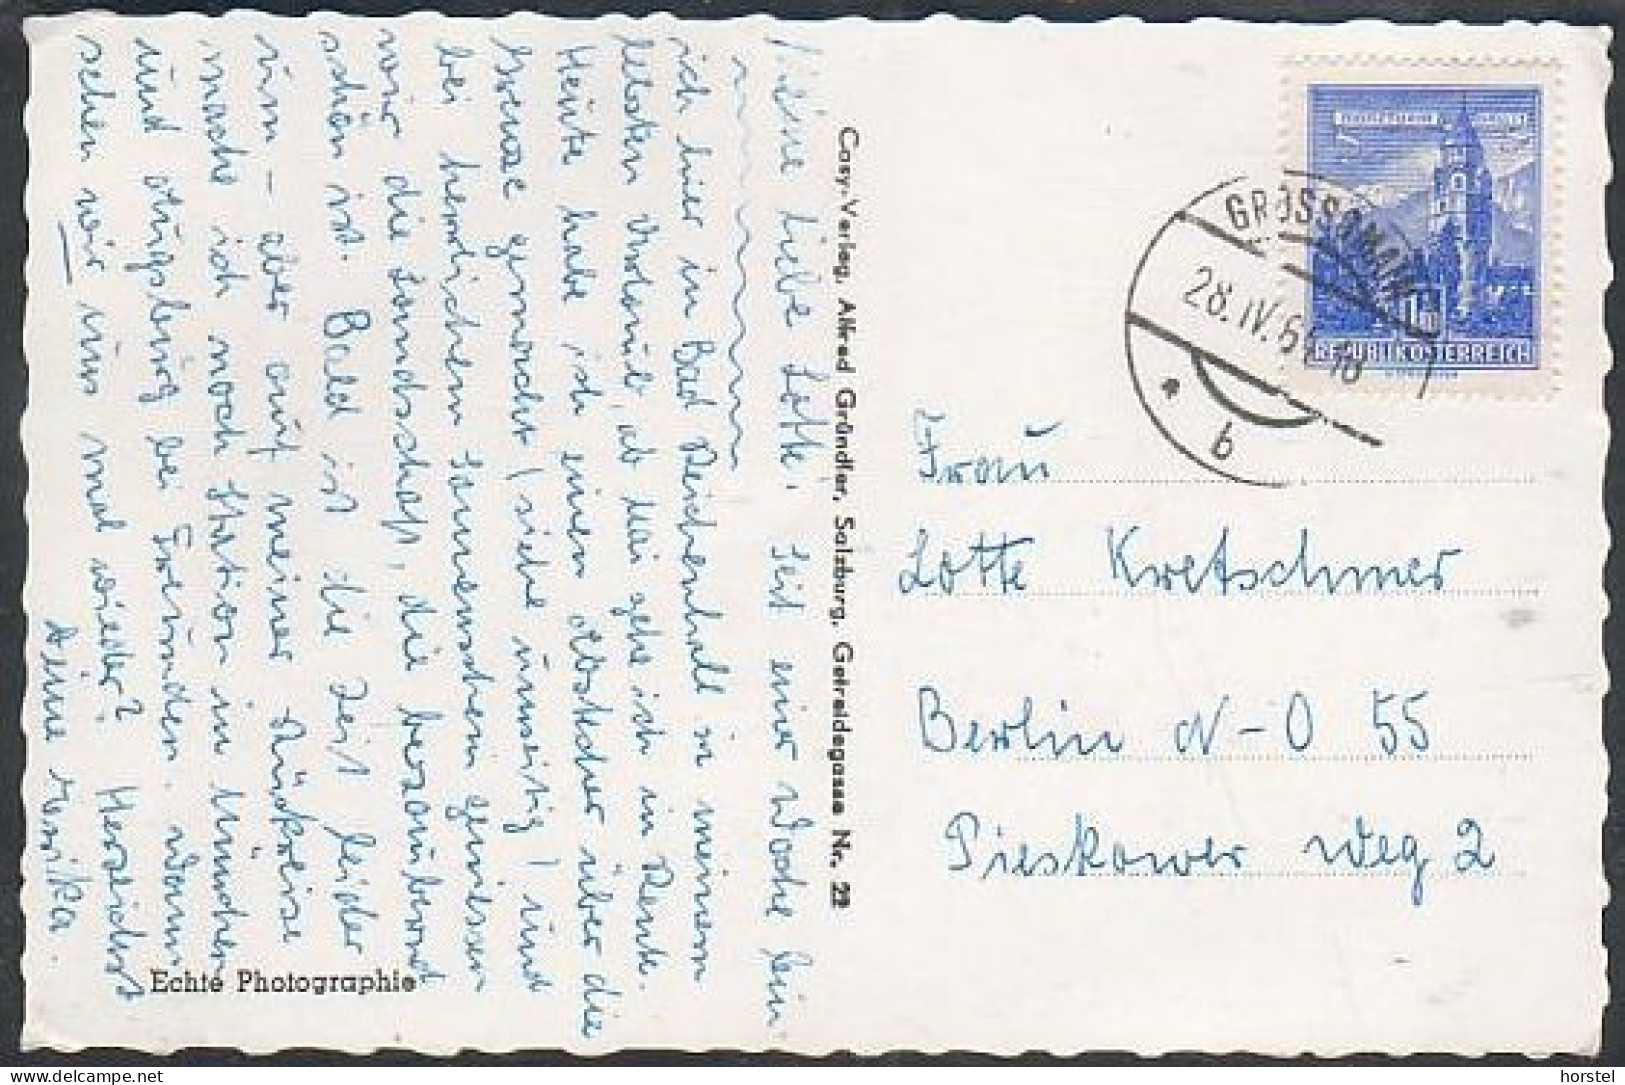 Meine liebe Lotte. Seit einer Woche bin
ich hier in Bad Reichenhall in meinem
letzten Urlaub, ab Mai gehe ich in Rente.
Heute habe ich einen Abstecher über die
Grenze gemacht (siehe umseitig) und
bei herrlichem Sonnenschein geniessen
wir die Landschaft, die bezaubernd
schön ist. Bald ist die Zeit leider
um – aber auf meiner Rückreise
mache ich noch Station in München
und Augsburg bei Freunden. Wann
sehen wir uns mal wieder? Herzlichst
Deine
Echte Photographie
Cosy-Verlag, Alfred Gründler, Salzburg, Getreidegasse Nr. 22
GROSSGMAIN
28. IV. 6
18
b
REPUBLIK ÖSTERREICH
Frau
Lotte Kretschmer
Berlin N-O 55
Pieskower Weg 2
horstel